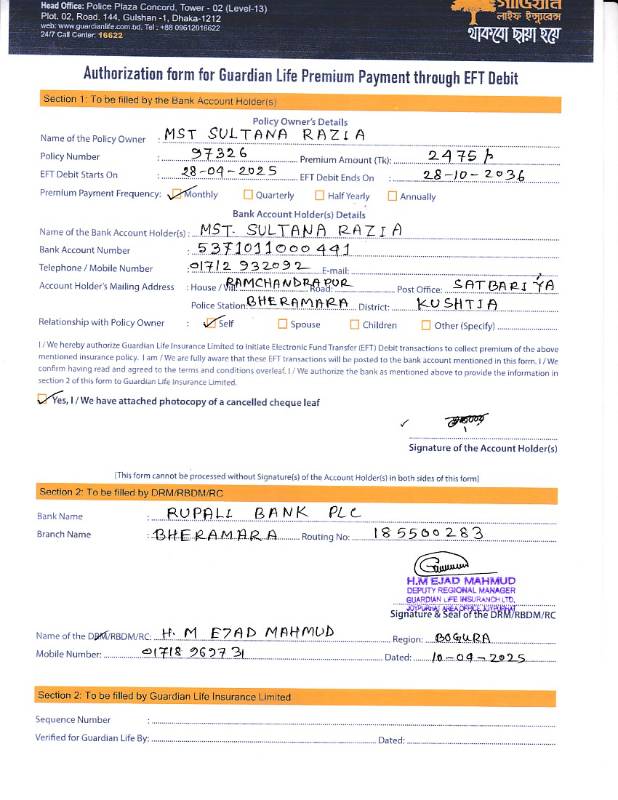 গার্ডিয়ান
লাইফ ইন্স্যুরেন্স
থাকবো ছায়া হয়ে
Head Office: Police Plaza Concord, Tower - 02 (Level-13)
Plot. 02, Road. 144, Gulshan -1, Dhaka-1212
web: www.guardianlife.com.bd, Tel : +88 09612016622
24/7 Call Center: 16622
Authorization form for Guardian Life Premium Payment through EFT Debit
Section 1: To be filled by the Bank Account Holder(s)
Policy Owner's Details
Name of the Policy Owner : MST SULTANA RAZIA
Policy Number : 97326 Premium Amount (Tk): 2475/-
EFT Debit Starts On : 28-04-2025 EFT Debit Ends On : 28-10-2036
Premium Payment Frequency: Monthly Quarterly Half Yearly Annually
Bank Account Holder(s) Details
Name of the Bank Account Holder(s): MST. SULTANA RAZIA
Bank Account Number : 5371011000441
Telephone / Mobile Number : 01712 932092 E-mail:
Account Holder's Mailing Address : House / Vill: RAMCHANDRAPUR Road: Post Office: SATBARIYA
Police Station: BHERAMARA District: KUSHTIA
Relationship with Policy Owner : Self Spouse Children Other (Specify)
I / We hereby authorize Guardian Life Insurance Limited to initiate Electronic Fund Transfer (EFT) Debit transactions to collect premium of the above
mentioned insurance policy. I am / We are fully aware that these EFT transactions will be posted to the bank account mentioned in this form. I / We
confirm having read and agreed to the terms and conditions overleaf. I / We authorize the bank as mentioned above to provide the information in
section 2 of this form to Guardian Life Insurance Limited.
Yes, I / We have attached photocopy of a cancelled cheque leaf
Signature of the Account Holder(s)
[This form cannot be processed without Signature(s) of the Account Holder(s) in both sides of this form]
Section 2: To be filled by DRM/RBDM/RC
Bank Name : RUPALI BANK PLC
Branch Name : BHERAMARA Routing No: 185500283
H.M EJAD MAHMUD
DEPUTY REGIONAL MANAGER
GUARDIAN LIFE INSURANCH LTD.
Signature & Seal of the DRM/RBDM/RC
Name of the DRM/RBDM/RC: H. M EJAD MAHMUD Region: BOGURA
Mobile Number: Dated: 10-04-2025
Section 2: To be filled by Guardian Life Insurance Limited
Sequence Number :
Verified for Guardian Life By: Dated: